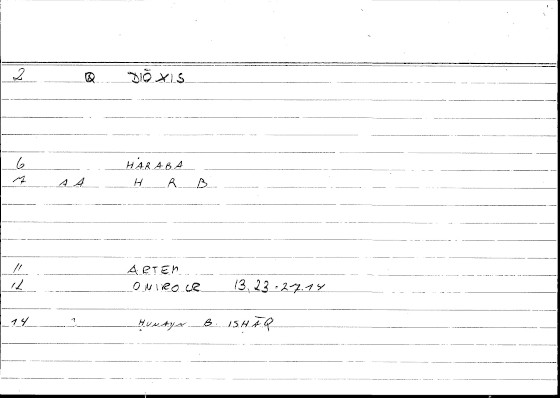 2 Q DIŌXIS
6 HARABA
7 AA H R B
11 ARTEM
12 ONIROCR 13.23-27.14
14 ḤUNAYN B. ISḤĀQ